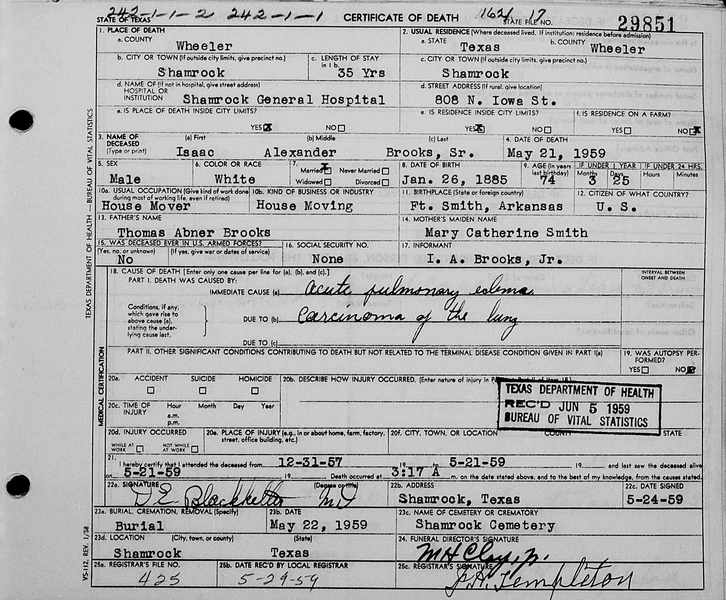 242-1-1-2 242-1-1 1621 17
STATE OF TEXAS CERTIFICATE OF DEATH STATE FILE NO. 29851
1. PLACE OF DEATH 2. USUAL RESIDENCE (Where deceased lived. If institution: residence before admission)
a. COUNTY a. STATE b. COUNTY
Wheeler Texas Wheeler
b. CITY OR TOWN (If outside city limits, give precinct no.) c. LENGTH OF STAY c. CITY OR TOWN (If outside city limits, give precinct no.)
in 1 b.
Shamrock 35 Yrs Shamrock
d. NAME OF (If not in hospital, give street address) d. STREET ADDRESS (If rural, give location)
HOSPITAL OR
INSTITUTION Shamrock General Hospital 808 N. Iowa St.
e. IS PLACE OF DEATH INSIDE CITY LIMITS? e. IS RESIDENCE INSIDE CITY LIMITS? f. IS RESIDENCE ON A FARM?
YES X NO YES X NO YES NO X
3. NAME OF (a) First (b) Middle (c) Last 4. DATE OF DEATH
DECEASED
(Type or print) Isaac Alexander Brooks, Sr. May 21, 1959
5. SEX 6. COLOR OR RACE 7. Married X Never Married 8. DATE OF BIRTH 9. AGE (In years last birthday) IF UNDER 1 YEAR IF UNDER 24 HRS.
Widowed Divorced Months Days Hours Minutes
Male White Jan. 26, 1885 74 3 25
10a. USUAL OCCUPATION (Give kind of work done during most of working life, even if retired) 10b. KIND OF BUSINESS OR INDUSTRY 11. BIRTHPLACE (State or foreign country) 12. CITIZEN OF WHAT COUNTRY?
House Mover House Moving Ft. Smith, Arkansas U. S.
13. FATHER'S NAME 14. MOTHER'S MAIDEN NAME
Thomas Abner Brooks Mary Catherine Smith
15. WAS DECEASED EVER IN U.S. ARMED FORCES? 16. SOCIAL SECURITY NO. 17. INFORMANT
(Yes, no, or unknown) (If yes, give war or dates of service)
No None I. A. Brooks, Jr.
18. CAUSE OF DEATH [Enter only one cause per line for (a), (b), and (c).] INTERVAL BETWEEN
PART I. DEATH WAS CAUSED BY: ONSET AND DEATH
IMMEDIATE CAUSE (a) Acute pulmonary edema
Conditions, if any, which gave rise to above cause (a), stating the underlying cause last. DUE TO (b) Carcinoma of the lung
DUE TO (c)
PART II. OTHER SIGNIFICANT CONDITIONS CONTRIBUTING TO DEATH BUT NOT RELATED TO THE TERMINAL DISEASE CONDITION GIVEN IN PART I(a) 19. WAS AUTOPSY PERFORMED?
YES NO X
20a. ACCIDENT SUICIDE HOMICIDE 20b. DESCRIBE HOW INJURY OCCURRED. (Enter nature of injury in Part I or Part II of item 18.)
20c. TIME OF INJURY Hour Month Day Year
a.m.
p.m.
TEXAS DEPARTMENT OF HEALTH
REC'D JUN 5 1959
BUREAU OF VITAL STATISTICS
20d. INJURY OCCURRED 20e. PLACE OF INJURY (e.g., in or about home, farm, factory, street, office building, etc.) 20f. CITY, TOWN, OR LOCATION COUNTY
WHILE AT WORK NOT WHILE AT WORK
21. I hereby certify that I attended the deceased from 12-31-57 19 5-21-59 19 and last saw the deceased alive
5-21-59 19 Death occurred at 3:17 A m. on the date stated above, and to the best of my knowledge, from the causes stated.
22a. SIGNATURE 22b. ADDRESS 22c. DATE SIGNED
MD Shamrock, Texas 5-24-59
23a. BURIAL, CREMATION, REMOVAL (Specify) 23b. DATE 23c. NAME OF CEMETERY OR CREMATORY
Burial May 22, 1959 Shamrock Cemetery
23d. LOCATION (City, town, or county) (State) 24. FUNERAL DIRECTOR'S SIGNATURE
Shamrock Texas M H Clay, Jr.
25a. REGISTRAR'S FILE NO. 25b. DATE REC'D BY LOCAL REGISTRAR 25c. REGISTRAR'S SIGNATURE
425 5-29-59 J.H. Templeton
TEXAS DEPARTMENT OF HEALTH — BUREAU OF VITAL STATISTICS
MEDICAL CERTIFICATION
VS-112 REV. 1/58